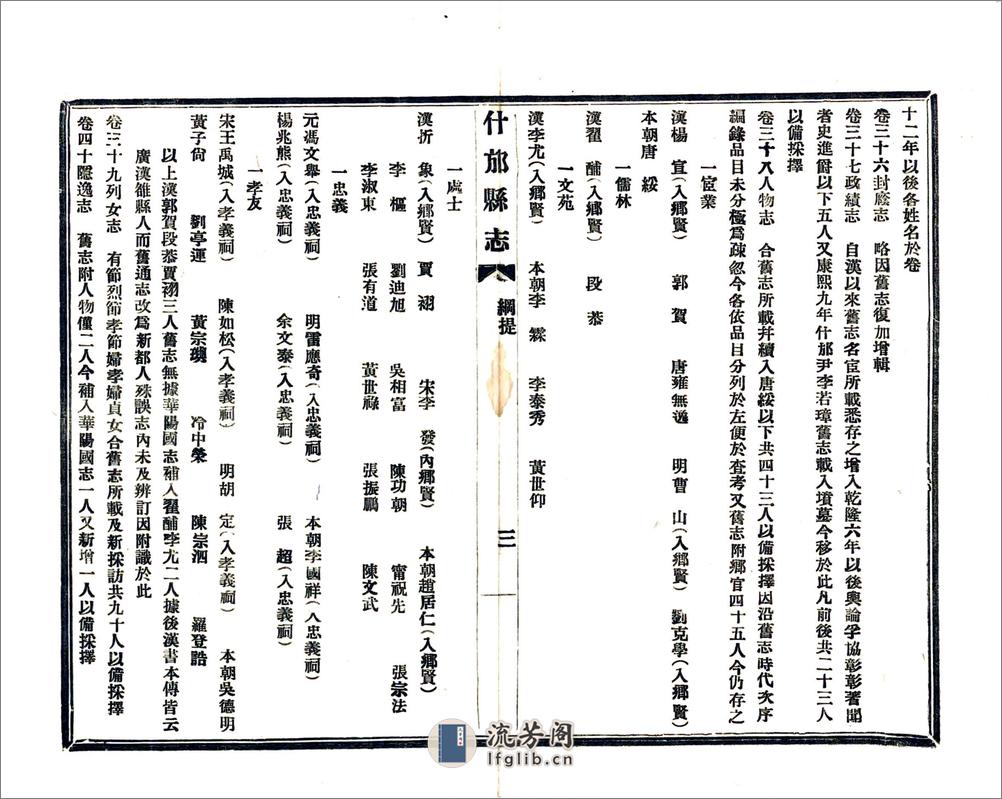 十二年以後各姓名於卷
卷三十六封廕志　略因舊志復加增輯
卷三十七政績志　自漢以來舊志名宦所載悉存之增入乾隆六年以後輿論孚協彰彰著聞
者史進爵以下五人又康熙九年什邡尹李若璋舊志載入墳墓今移於此凡前後共二十三人
以備採擇
卷三十八人物志　合舊志所載幷續入唐綏以下共四十三人以備採擇因沿舊志時代次序
編錄品目未分極爲疎忽今各依品目分列於左便於查考又舊志附鄉官四十五人今仍存之
一宦業
漢楊　宣(入鄉賢)　郭　賀　唐雍無逸　明曹　山(入鄉賢)　劉克學(入鄉賢)
本朝唐　綏
一儒林
漢翟　酺(入鄉賢)　段　恭
一文苑
漢李尤(入鄉賢)　本朝李　霖　李泰秀　黃世仰
什邡縣志　綱提　三
一處士
漢折　象(入鄉賢)　賈　栩　宋李　發(內鄉賢)　本朝趙居仁(入鄉賢)
李　樞　劉迪旭　吳相富　陳功朝　甯祝先　張宗法
李淑東　張有道　黃世祿　張振鵬　陳文武
一忠義
元馮文舉(入忠義祠)　明雷應奇(入忠義祠)　本朝李國祥(入忠義祠)
楊兆熊(入忠義祠)　余文泰(入忠義祠)　張　超(入忠義祠)
一孝友
宋王禹城(入孝義祠)　陳如松(入孝義祠)　明胡　定(入孝義祠)　本朝吳德明
黃子尙　劉亭運　黃宗璵　冷中榮　陳宗泗　羅登誥
以上漢郭賀段恭賈栩三人舊志無據華陽國志補入翟酺李尤二人據後漢書本傳皆云
廣漢雒縣人而舊通志改爲新都人殊誤志內未及辨訂因附識於此
卷三十九列女志　有節烈節孝節婦孝婦貞女合舊志所載及新採訪共九十人以備採擇
卷四十隱逸志　舊志附人物僅二人今補入華陽國志一人又新增一人以備採擇
流芳阁
lfglib.cn